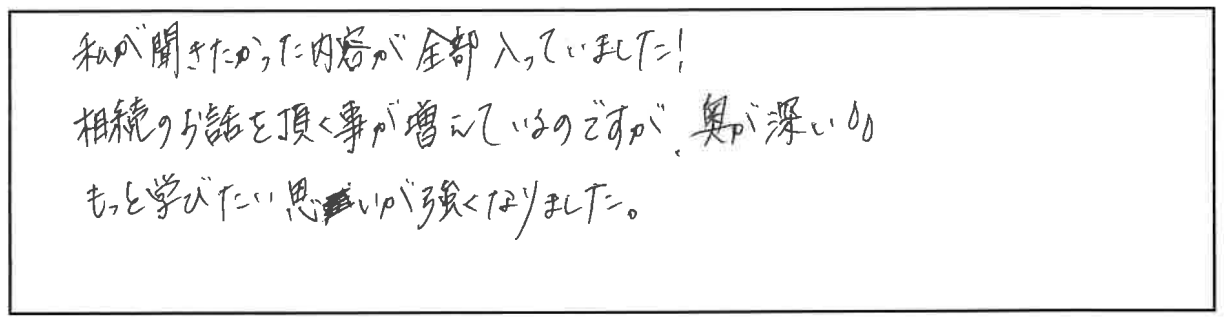 私が聞きたかった内容が全部入っていました!
相続のお話を頂く事が増えているのですが、奥が深い
もっと学びたい思いが強くなりました。